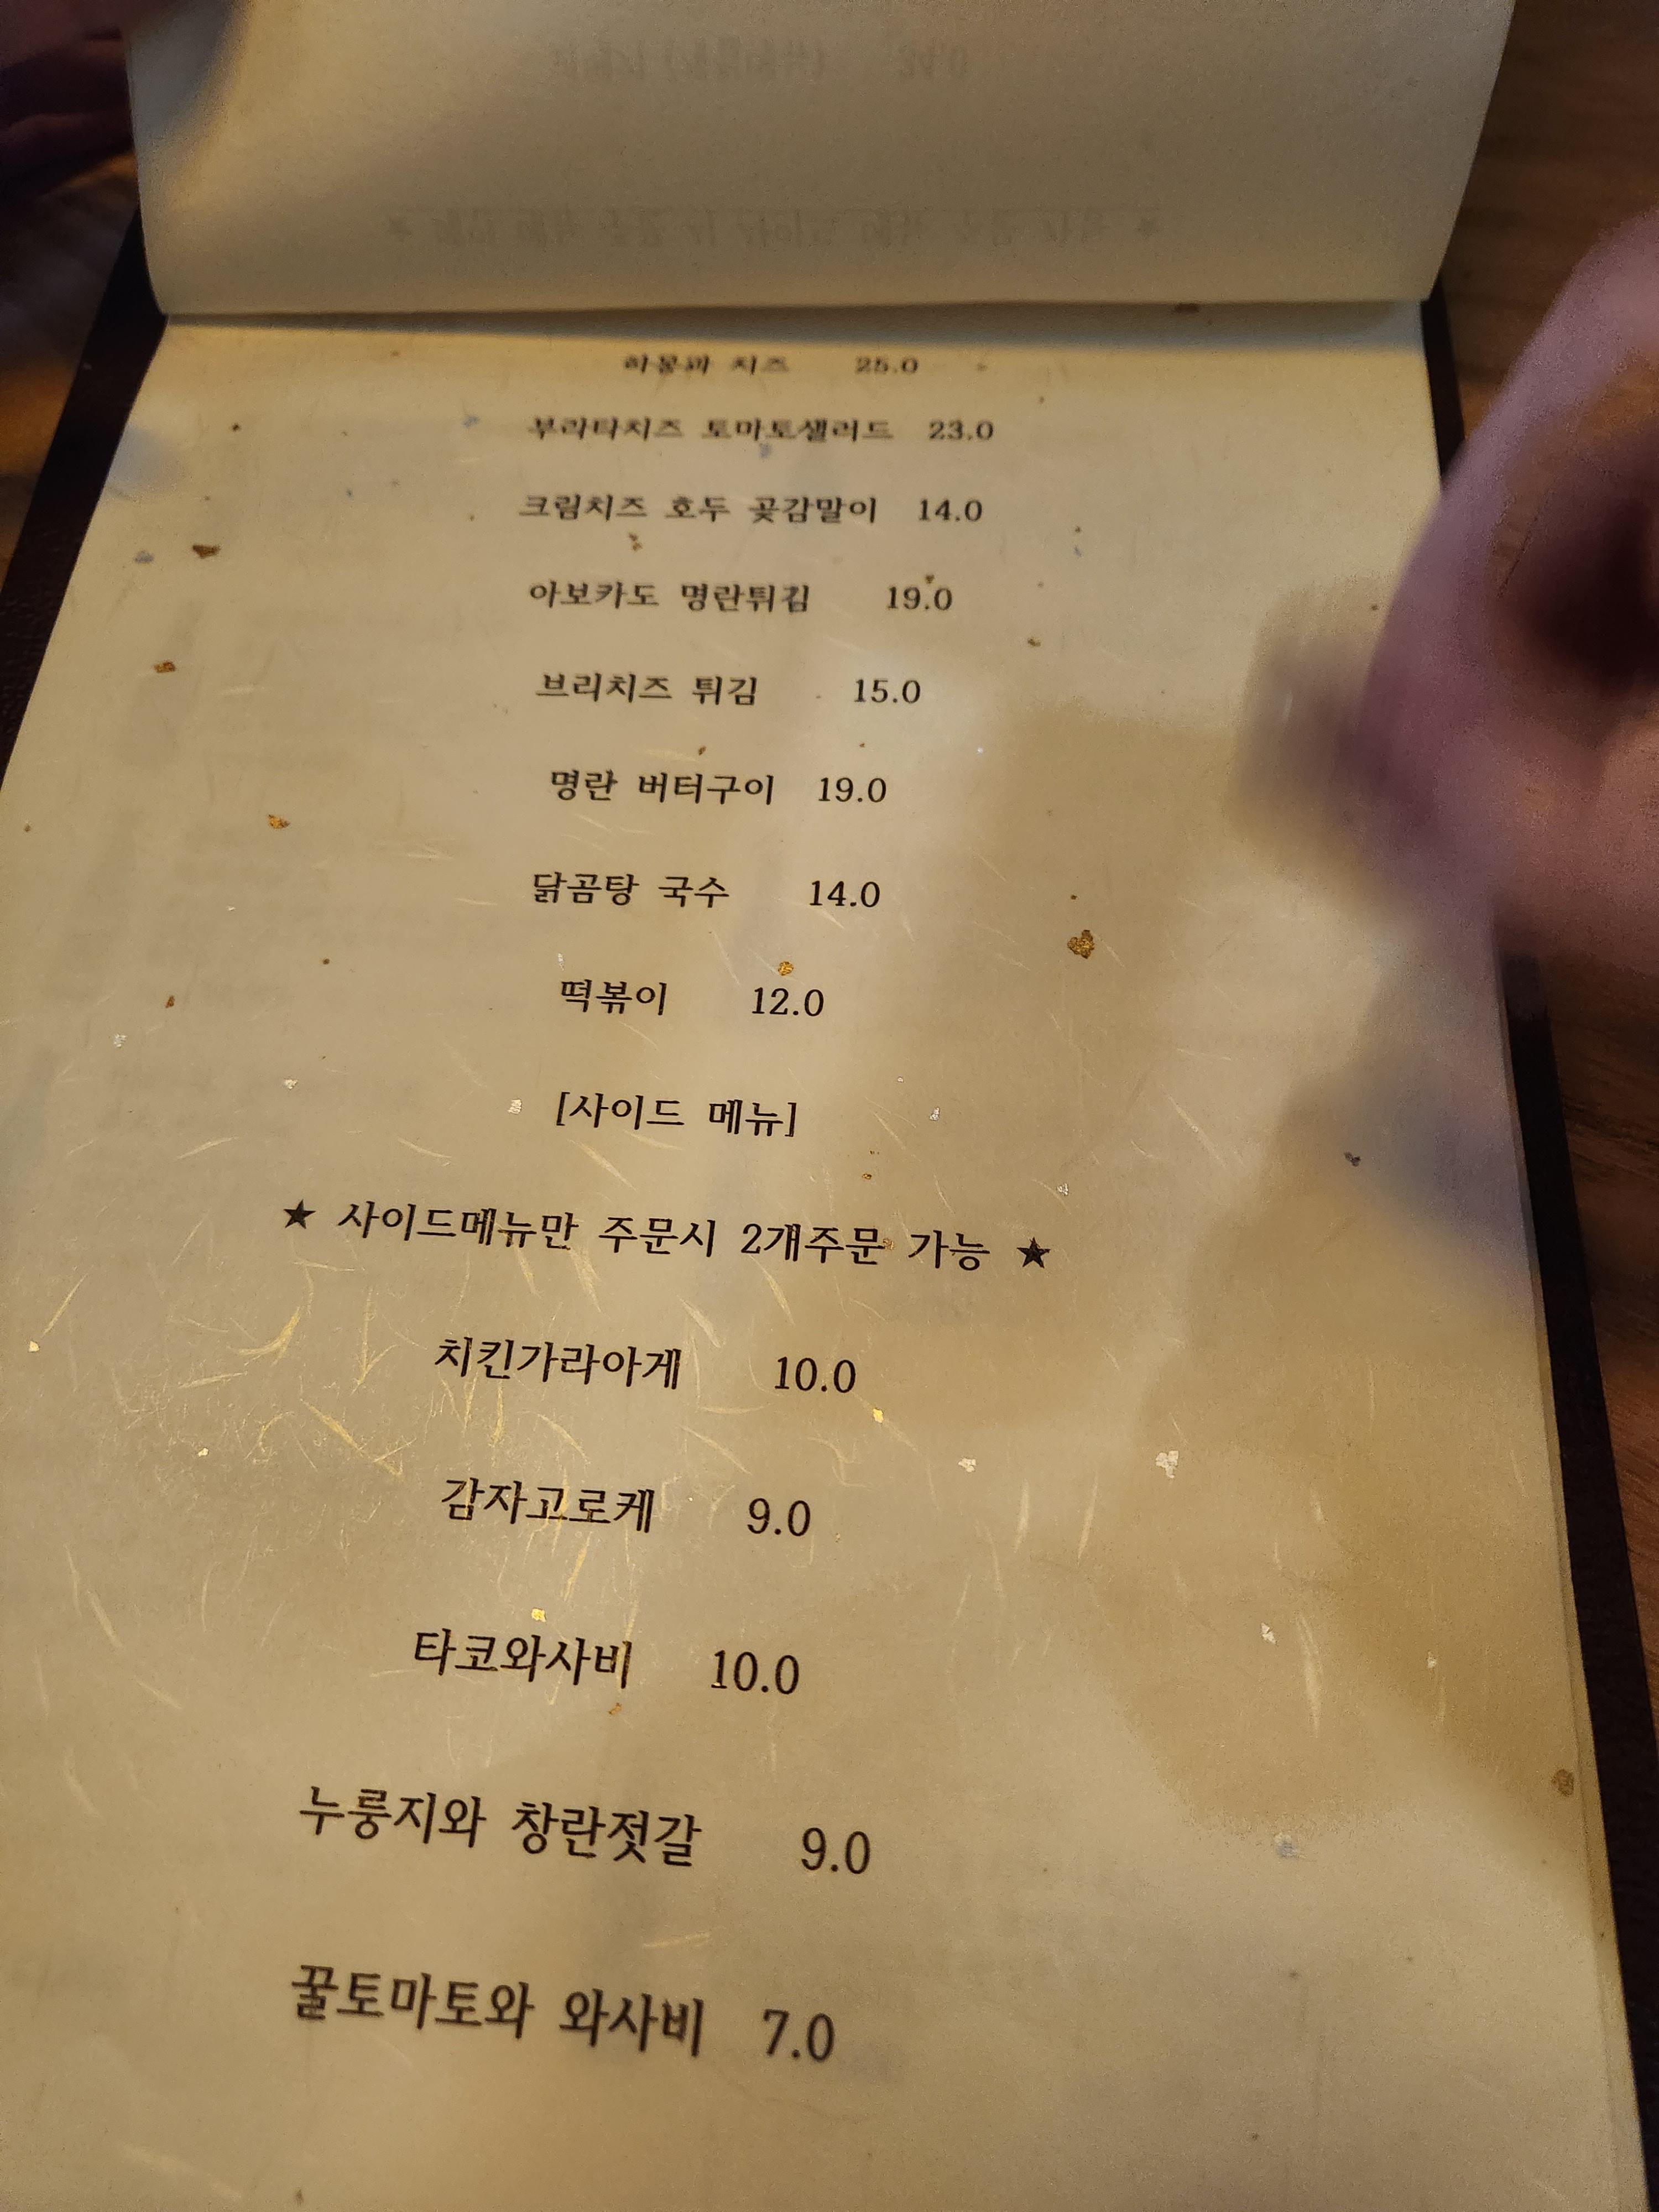 하몽과 치즈 25.0
부라타치즈 토마토샐러드 23.0
크림치즈 호두 곶감말이 14.0
아보카도 명란튀김 19.0
브리치즈 튀김 15.0
명란 버터구이 19.0
닭곰탕 국수 14.0
떡볶이 12.0
[사이드 메뉴]
★ 사이드메뉴만 주문시 2개주문 가능 ★
치킨가라아게 10.0
감자고로케 9.0
타코와사비 10.0
누룽지와 창란젓갈 9.0
꿀토마토와 와사비 7.0